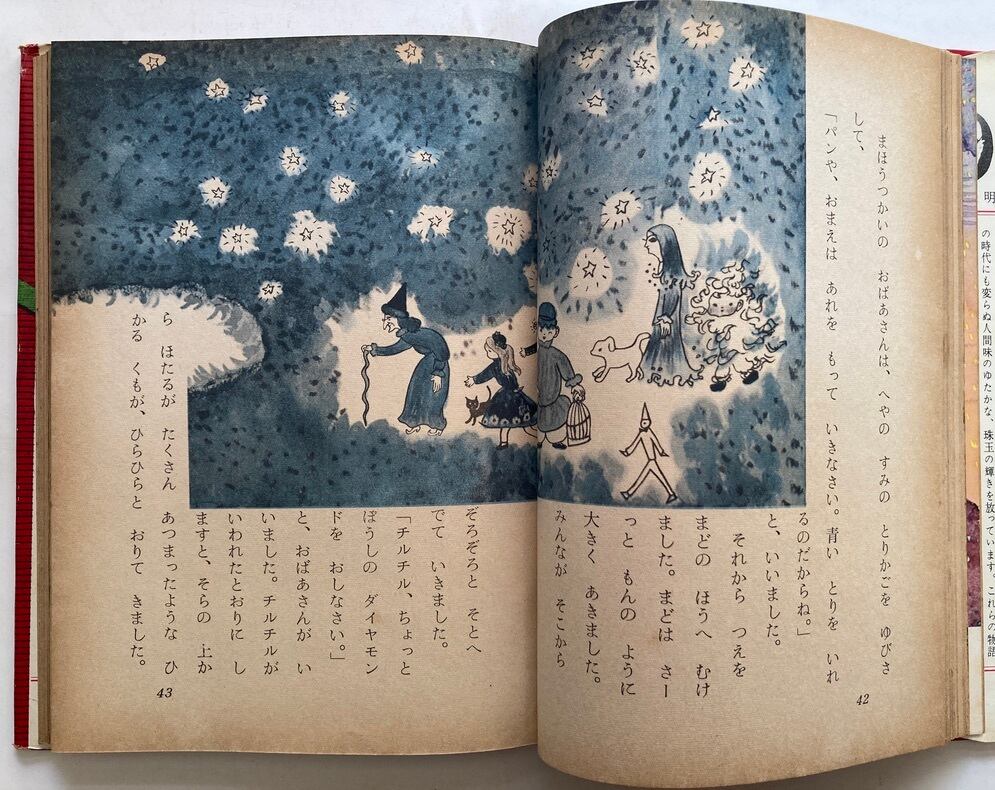 まほうつかいの おばあさんは、へやの すみの とりかごを ゆびさ
して、
「パンや、おまえは あれを もって いきなさい。青い とりを いれ
るのだからね。」
と、いいました。
それから つえを
まどの ほうへ むけ
ました。まどは さー
っと もんの ように
大きく あきました。
みんなが そこから
42
ぞろぞろと そとへ
でて いきました。
「チルチル、ちょっと
ぼうしの ダイヤモン
ドを おしなさい。」
と、おばあさんが い
いました。チルチルが
いわれたとおりに し
ますと、そらの 上か
ら ほたるが たくさん あつまったような ひ
かる くもが、ひらひらと おりて きました。
43
明
の時代にも変らぬ人間味のゆたかな、珠玉の輝きを放っています。これらの物語